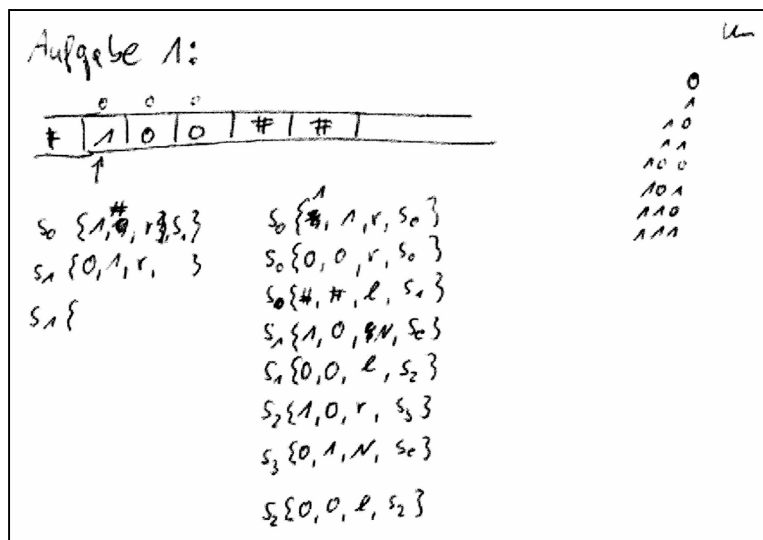 Aufgabe 1:
0 0 0
# | 1 | 0 | 0 | # | # |
↑
s₀ {1, #, r, s₁}
s₁ {0, 1, r, }
s₁ {
1
s₀ {1, 1, r, s₀}
s₀ {0, 0, r, s₀}
s₀ {#, #, l, s₁}
s₁ {1, 0, N, se}
s₁ {0, 0, l, s₂}
s₂ {1, 0, r, s₃}
s₃ {0, 1, N, se}
s₂ {0, 0, l, s₂}
0
1
10
11
100
101
110
111